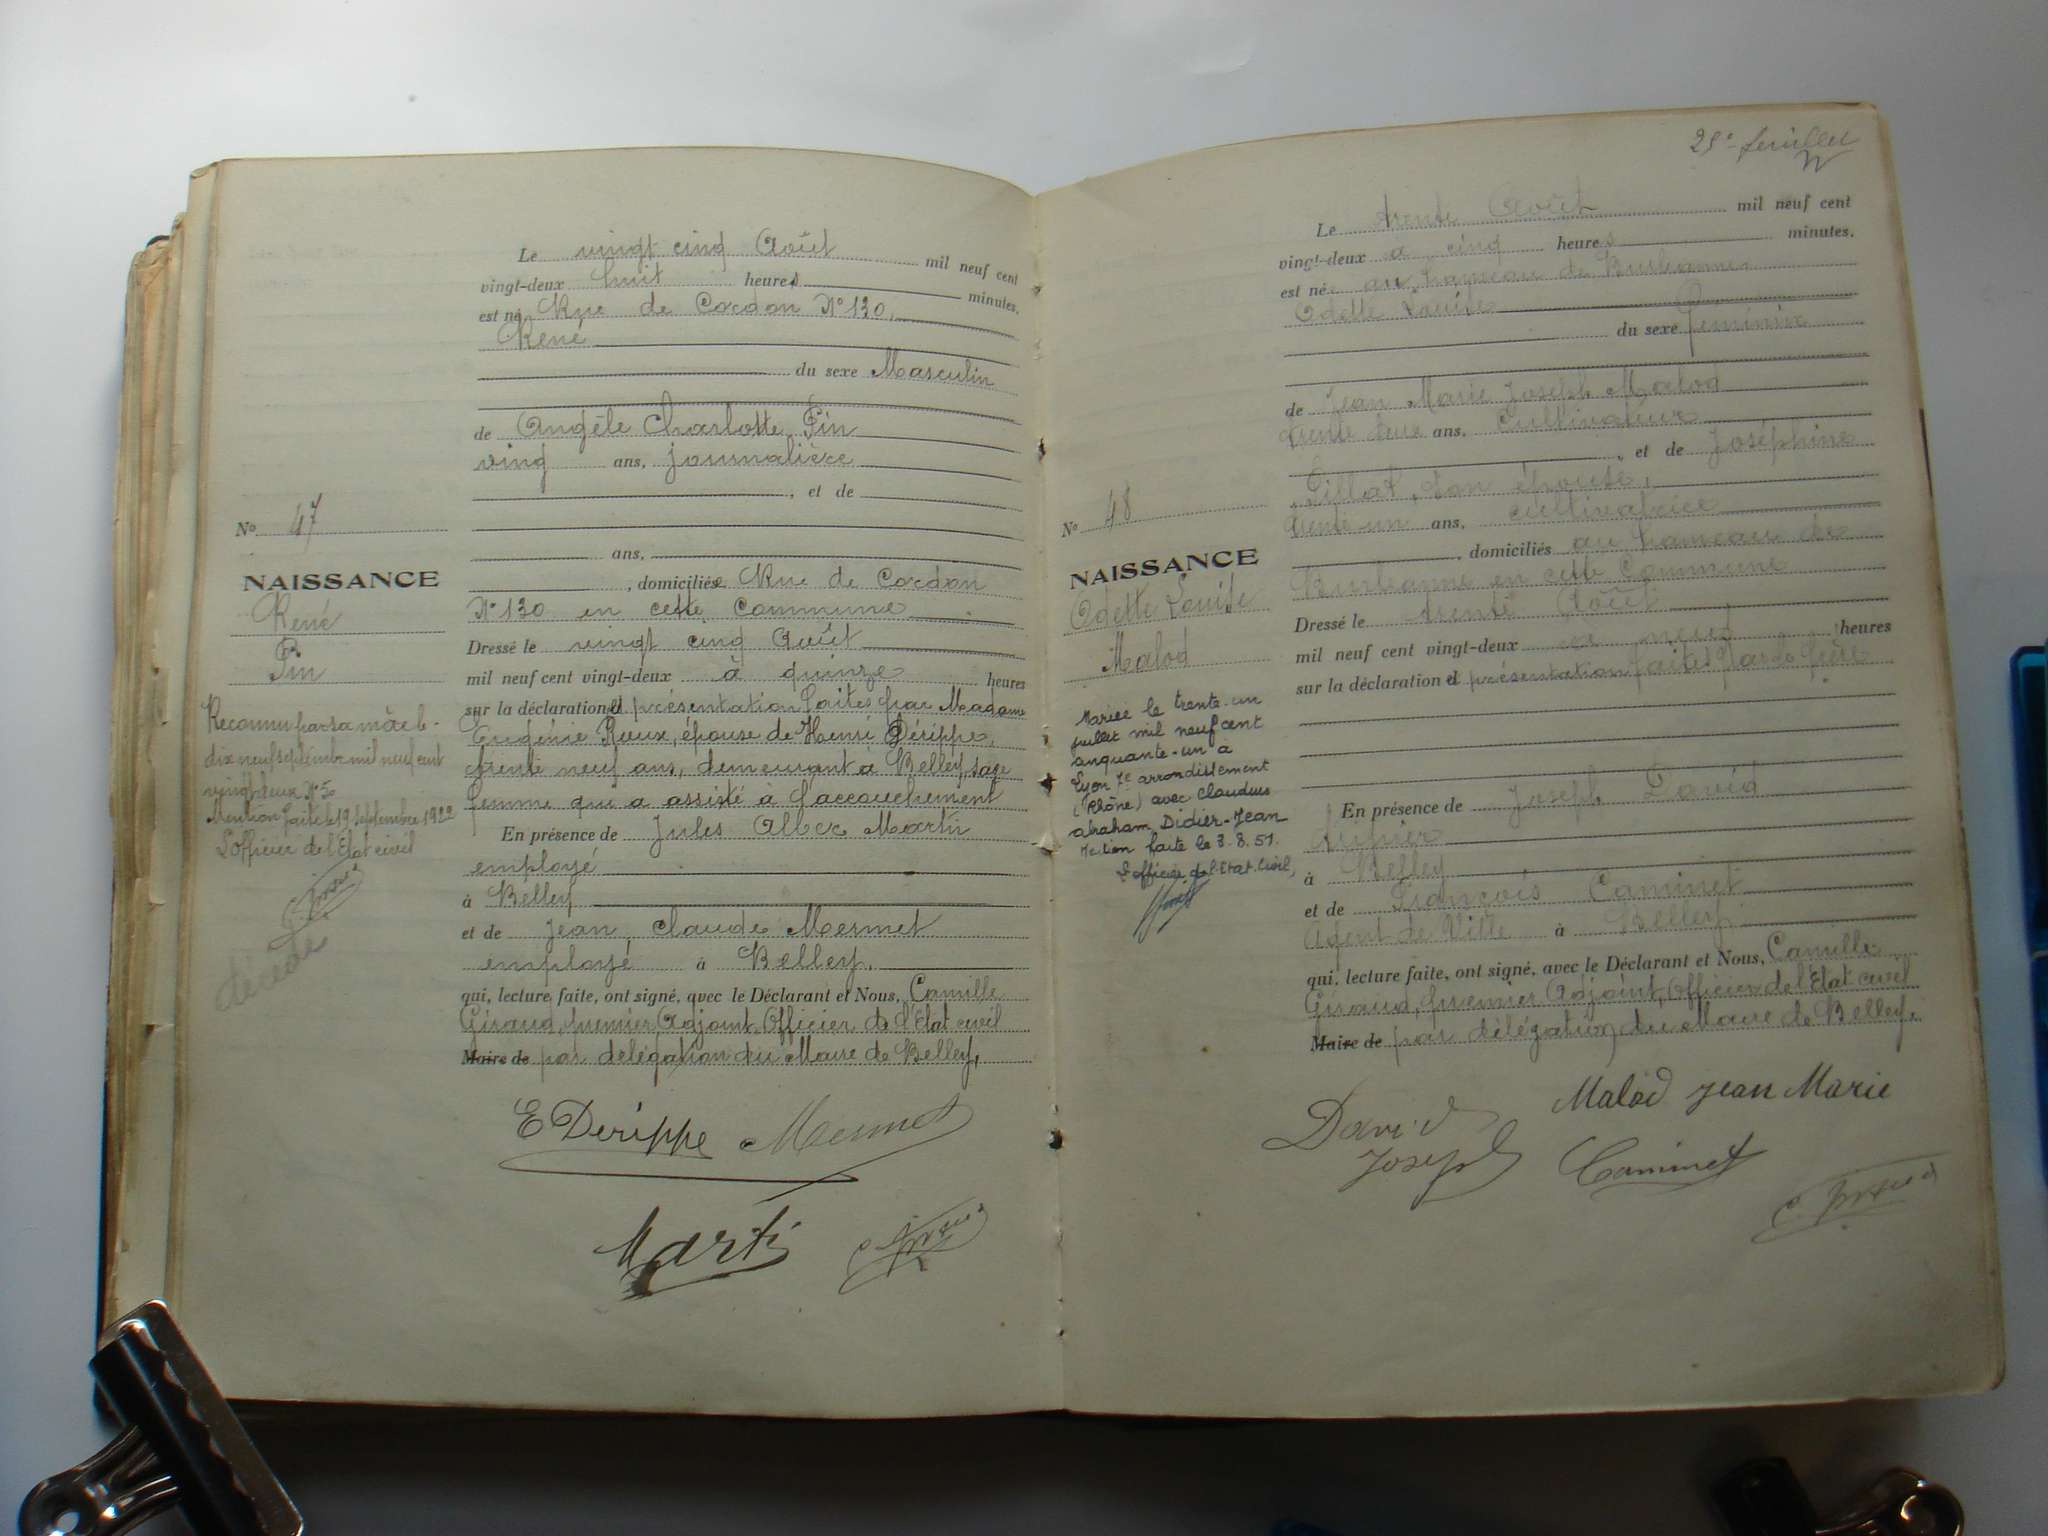 Le vingt cinq Août mil neuf cent
vingt-deux huit heures minutes,
est né Rue de Cordon N° 130,
René
du sexe Masculin
de Angèle Charlotte Pin
ving ans, journalière
, et de
ans,
, domiciliée Rue de Cordon
N° 130 en cette Commune
Dressé le vingt cinq Août
mil neuf cent vingt-deux à quinze heures
sur la déclaration et présentation faites par Madame
Eugénie Roux, épouse de Henri Dérippe,
trente neuf ans, demeurant à Belley, sage
femme qui a assisté à l'accouchement
En présence de Jules Martin
employé
à Belley
et de Jean Claude Mermet
employé à Belley,
qui, lecture faite, ont signé, avec le Déclarant et Nous, Camille
Giraud, premier Adjoint, Officier de l'Etat civil
Maire de par délégation du Maire de Belley,
E Derippe Mermet
Martin
N° 47
NAISSANCE
René
Pin
Reconnu par sa mère le
dix neuf septembre mil neuf cent
vingt deux N° 50
Mention faite le 19 septembre 1922
L'officier de l'Etat civil
décédé
25e feuillet
Le trente Août mil neuf cent
vingt-deux à cinq heures minutes,
est née au hameau de
Odette Louise
du sexe Féminin
de Jean Marie Joseph Malod
trente deux ans, Cultivateur
, et de Joséphine
Pillat, son épouse,
trente-un ans, cultivatrice
, domiciliés au hameau de
en cette Commune
Dressé le trente Août
mil neuf cent vingt-deux à neuf heures
sur la déclaration et présentation faites par le Père
En présence de Joseph David
à Belley
et de François Caminet
Agent de Ville à Belley,
qui, lecture faite, ont signé, avec le Déclarant et Nous, Camille
Giraud, premier Adjoint, Officier de l'Etat civil
Maire de par délégation du Maire de Belley,
Malod Jean Marie
David
Joseph Caminet
N° 48
NAISSANCE
Odette Louise
Malod
Mariée le trente-un
juillet mil neuf cent
cinquante-un à
Lyon 7e arrondissement
(Rhône) avec Claudius
Abraham Didier-Jean
faite le 3.8.51.
L'officier de l'Etat Civil,